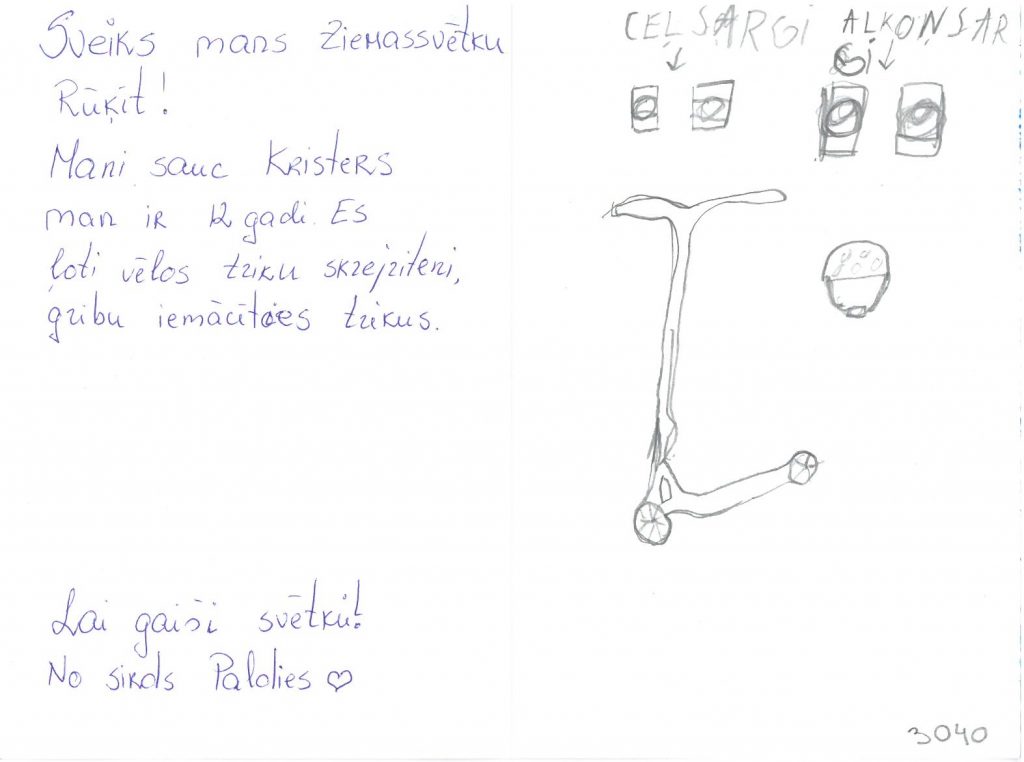 Sveiks mans Ziemassvētku
Rūķīt!
Mani sauc Kristers
man ir 12 gadi. Es
ļoti vēlos triku skrejriteni,
gribu iemācīties trikus.
Lai gaiši svētki!
No sirds Paldies ♡
CEĻSARGI
AĻKOŅSAR
GI
3040